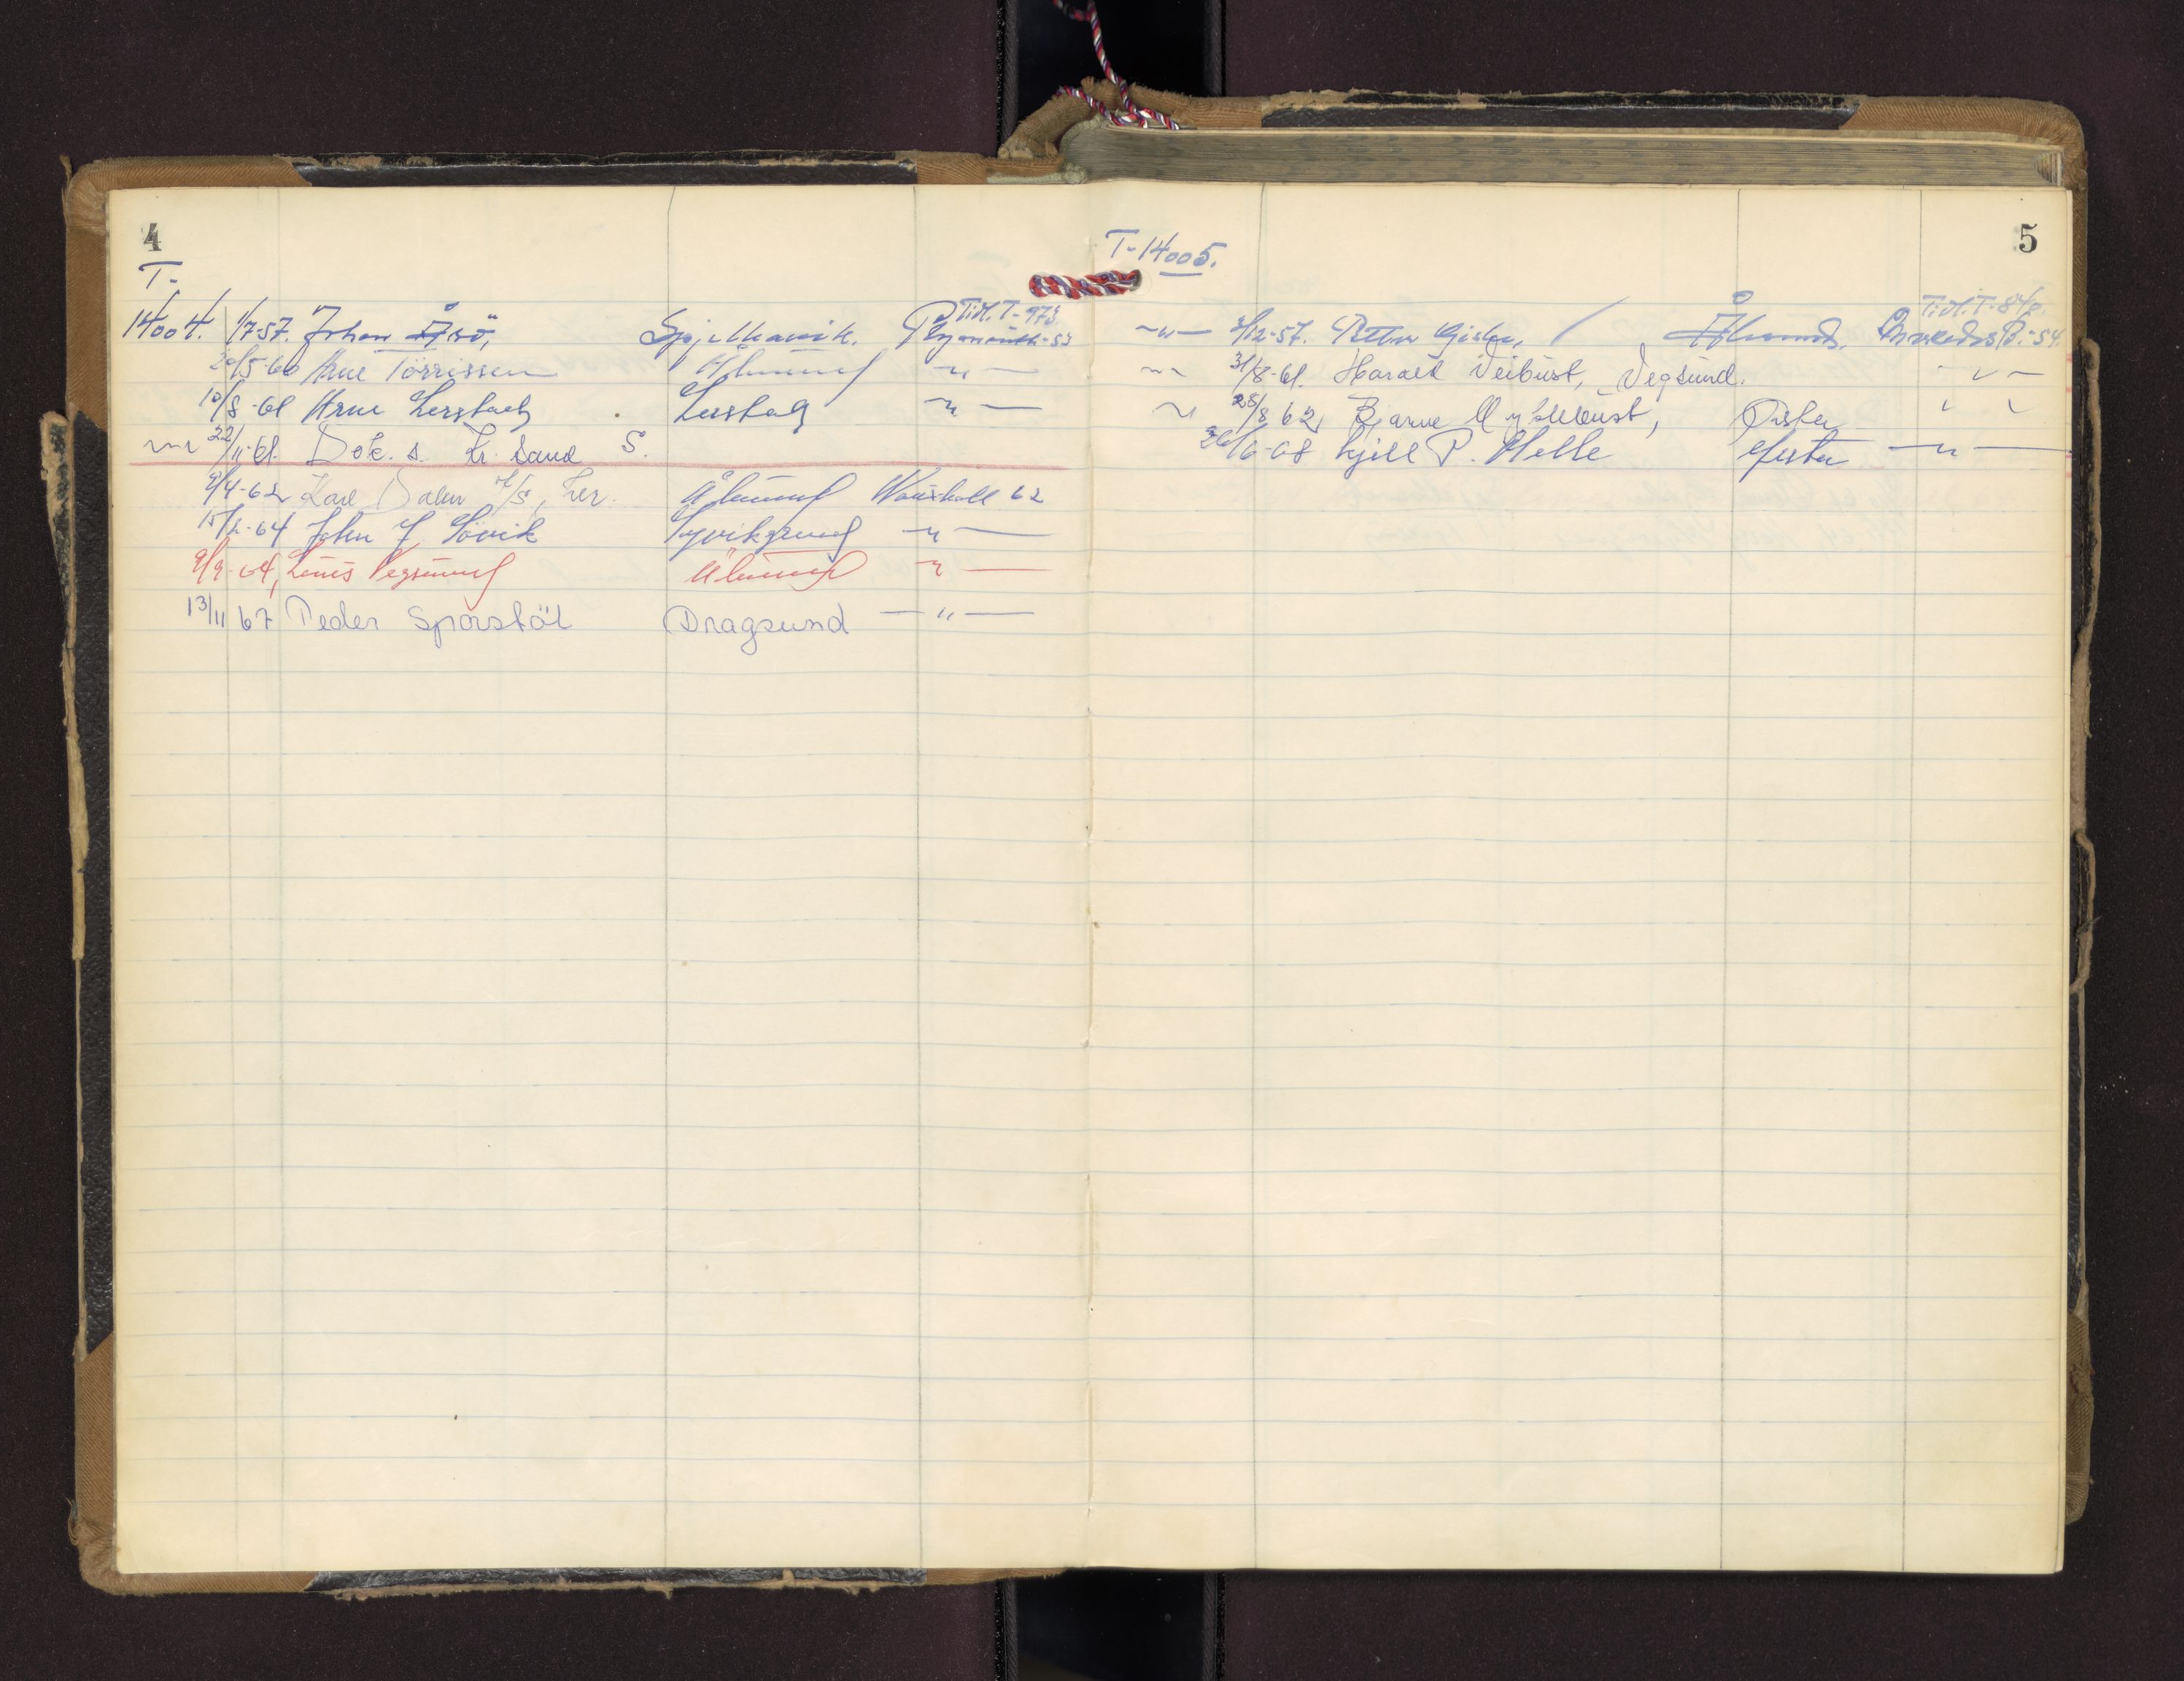 4
T-
Tidl. T-973
14004. 1/7-57. Johan Åsö, Spjelkavik. Plymouth-53
20/5-60 Arne Törrissen Ålesund —"—
10/8-61 Arne Lerstad Lerstad —"—
—"— 22/11-61. Dok. s. Kr. Sand S.
9/4-62 Karl Dalen A/S, her. Ålesund Vauxhall 62
15/2-64 John J. Sövik Syvikgrend —"—
9/9-64, Linus Vegsund Ålesund —"—
13/11 67 Peder Sporstöl Dragsund —"—
5
T-14005.
Tidl. T-840.
—"— 2/12-57. Petter Giske, Ålesund. Mercedes B.-54.
—"— 31/8-61. Harald Veibust, Vegsund. —"—
—"— 28/8 62, Bjarne Myklebust, Örsta —"—
26/6-68 Kjell P. Helle Ørsta —"—